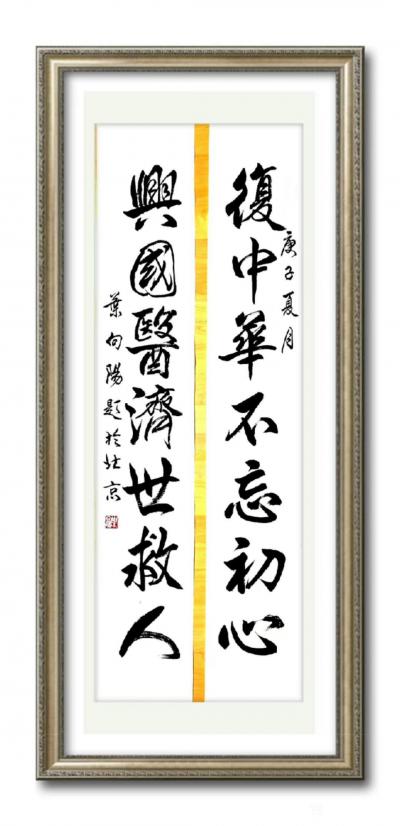 庚子夏月
復中華不忘初心
興國醫濟世救人
葉向陽題於北京